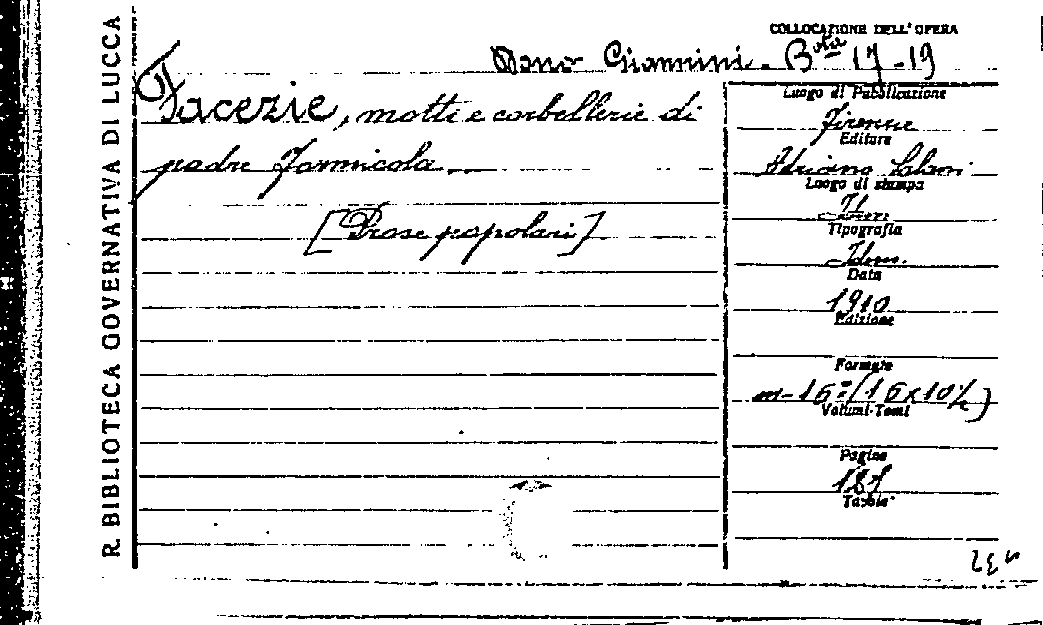 R. BIBLIOTECA GOVERNATIVA DI LUCCA
COLLOCAZIONE DELL'OPERA
Dono Giannini. B.ta 17-19
Facezie, motti e corbellerie di
padre Formicola...
[Prose popolari]
Luogo di Pubblicazione
Firenze
Editore
Adriano Salani
Luogo di stampa
Idem
Tipografia
Idem.
Data
1910
Edizione
Formato
in-16º (16x10½)
Volumi-Tomi
Pagine
Tavole